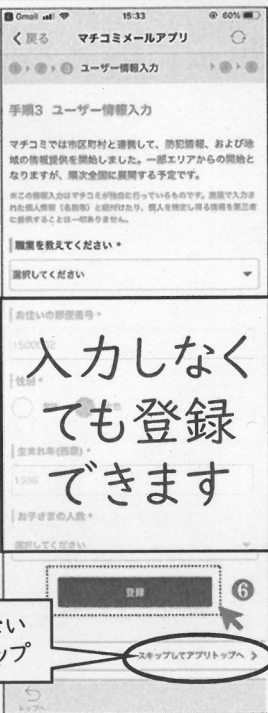 Gmail 15:33 60%
戻る マチコミメールアプリ
1 2 3 ユーザー情報入力 4 5
手順3 ユーザー情報入力
マチコミでは市区町村と連携して、防犯情報、および地
域の情報提供を開始しました。一部エリアからの開始と
なりますが、順次全国に展開する予定です。
※この情報入力はマチコミが独自に行っているものです。施設で入力さ
れた個人情報(名前等)と紐付けたり、個人を特定し得る情報を第三者
に提供することは一切ありません。
職業を教えてください *
選択してください
お住いの郵便番号 *
入力しなく
性別 *
ても登録
生まれ年(西暦) *
できます
お子さまの人数 *
選択してください
登録
❻
さい
ップ
スキップしてアプリトップへ
トップへ